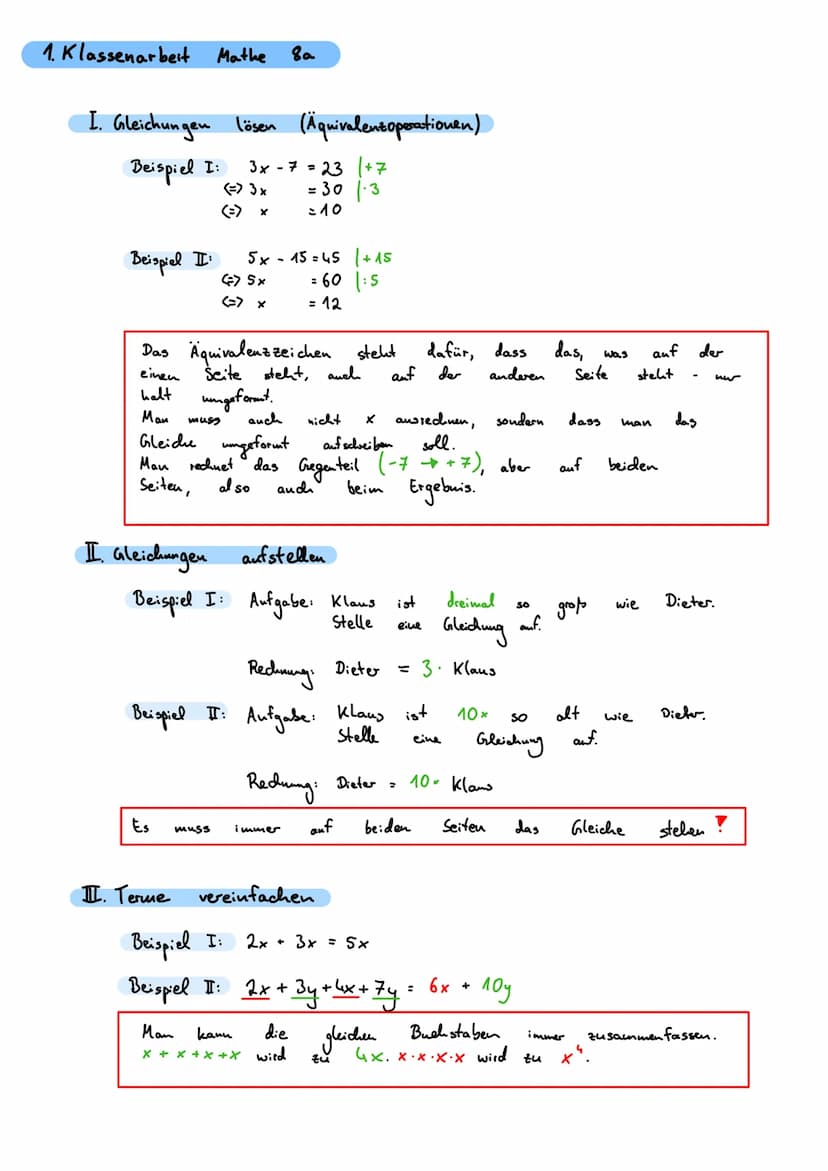 1. Klassenarbeit Mathe 8a
I. Gleichungen lösen (Äquivalenzoperationen)
Beispiel I: 3x - 7 = 23 |+7
(=) 3x = 30 |·3
(=) x = 10
Beispiel II: 5x - 15 = 45 |+15
(=) 5x = 60 |:5
(=) x = 12
Das Äquivalenzzeichen steht dafür, dass das, was auf der
einen Seite steht, auch auf der anderen Seite steht - nur
halt umgeformt.
Man muss auch nicht x ausrechnen, sondern dass man das
Gleiche umgeformt aufschreiben soll.
Man rechnet das Gegenteil (-7 → +7), aber auf beiden
Seiten, also auch beim Ergebnis.
II. Gleichungen aufstellen
Beispiel I: Aufgabe: Klaus ist dreimal so groß wie Dieter.
Stelle eine Gleichung auf.
Rechnung: Dieter = 3· Klaus
Beispiel II: Aufgabe: Klaus ist 10x so alt wie Dieter.
Stelle eine Gleichung auf.
Rechnung: Dieter = 10· Klaus
Es muss immer auf beiden Seiten das Gleiche stehen !
III. Terme vereinfachen
Beispiel I: 2x + 3x = 5x
Beispiel II: 2x + 3y + 4x + 7y = 6x + 10y
Man kann die gleichen Buchstaben immer zusammenfassen.
x + x + x + x wird zu 4x. x·x·x·x wird zu x⁴.